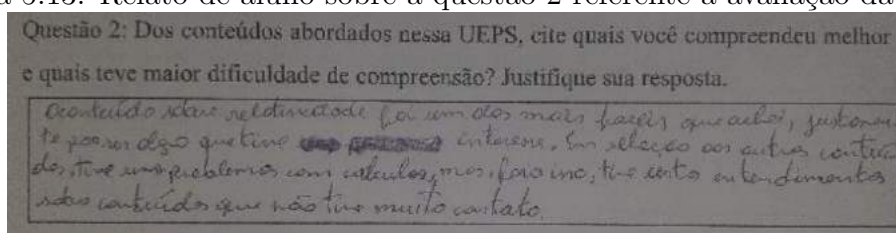 a 5.15: Relato de aluno sobre a questão 2 referente a avaliação da
Questão 2: Dos conteúdos abordados nessa UEPS, cite quais você compreendeu melhor
e quais teve maior dificuldade de compreensão? Justifique sua resposta.
O conteúdo sobre relatividade foi um dos mais faceis que achei, justamen
te por ser algo que tive interesse. Em relação aos outros conteú
dos, tive uns problemas com calculos, mas, fora isso, tive certo entendimentos
sobre conteúdos que não tive muito contato.